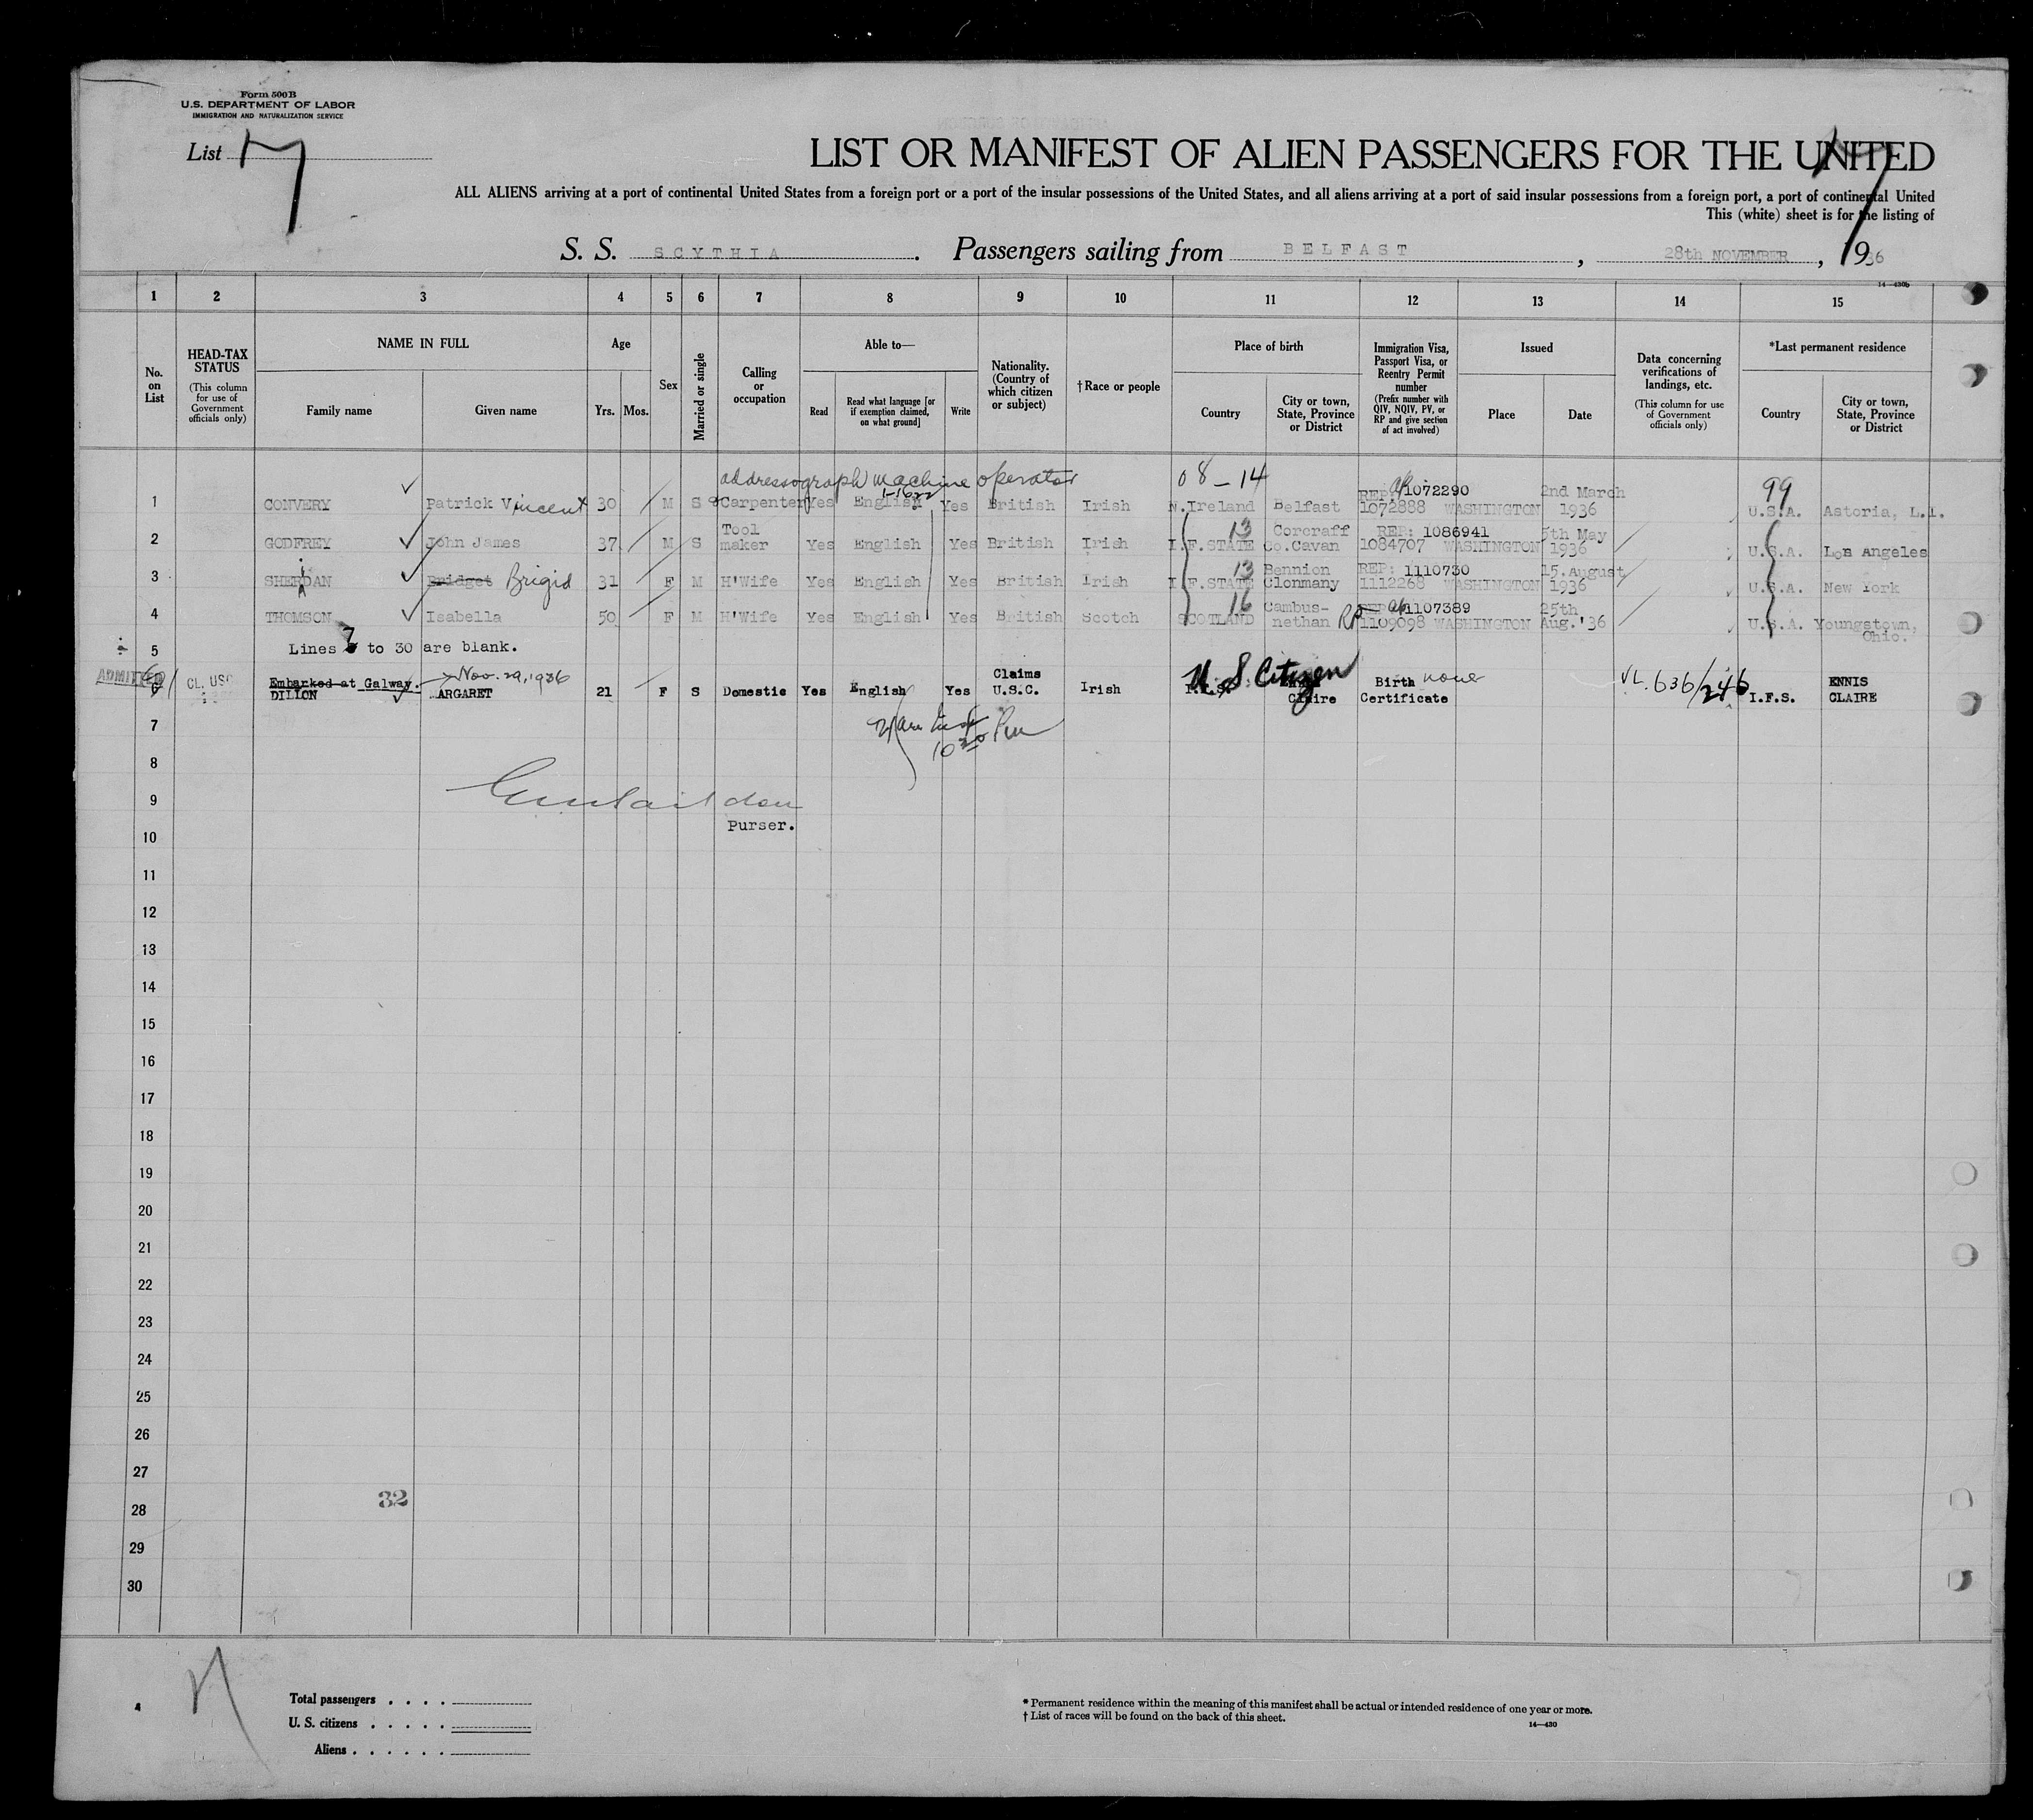 Form 500 B
U.S. DEPARTMENT OF LABOR
IMMIGRATION AND NATURALIZATION SERVICE
List 7
7
LIST OR MANIFEST OF ALIEN PASSENGERS FOR THE UNITED
ALL ALIENS arriving at a port of continental United States from a foreign port or a port of the insular possessions of the United States, and all aliens arriving at a port of said insular possessions from a foreign port, a port of continental United
This (white) sheet is for the listing of
S. S. SCYTHIA. Passengers sailing from BELFAST, 28th NOVEMBER, 1936
14—430b
1 2 3 4 5 6 7 8 9 10 11 12 13 14 15
No. on List
HEAD-TAX STATUS
(This column for use of Government officials only)
NAME IN FULL
Family name Given name
Age
Yrs. Mos.
Sex
Married or single
Calling or occupation
Able to—
Read
Read what language [or if exemption claimed, on what ground]
Write
Nationality. (Country of which citizen or subject)
†Race or people
Place of birth
Country
City or town, State, Province or District
Immigration Visa, Passport Visa, or Reentry Permit number
(Prefix number with QIV, NQIV, PV, or RP and give section of act involved)
Issued
Place Date
Data concerning verifications of landings, etc.
(This column for use of Government officials only)
*Last permanent residence
Country
City or town, State, Province or District
addressograph machine operator 08-14 99
1 CONVERY Patrick Vincent 30 M S Carpenter Yes English Yes British Irish N.Ireland Belfast REP: 1072290 1072888 WASHINGTON 2nd March 1936 U.S.A. Astoria, L.I.
2 GODFREY John James 37 M S Tool maker Yes English Yes British Irish 13 I.F.STATE Corcraff Co.Cavan REP: 1086941 1084707 WASHINGTON 5th May 1936 U.S.A. Los Angeles
3 SHERiDAN Bridget Brigid 31 F M H'Wife Yes English Yes British Irish 13 I.F.STATE Bennion Clonmany REP: 1110730 1112268 WASHINGTON 15.August 1936 U.S.A. New York
4 THOMSON Isabella 50 F M H'Wife Yes English Yes British Scotch 16 SCOTLAND Cambus-nethan RP 1107389 1109098 WASHINGTON 25th Aug.'36 U.S.A. Youngstown, Ohio.
5 Lines 7 to 30 are blank.
ADMITTED
Embarked at Galway. Nov. 29, 1936
6 CL. USC DILLON ARGARET 21 F S Domestic Yes English Yes Claims U.S.C. Irish U S Citizen Claire Birth Certificate none VL. 636/246 I.F.S. ENNIS CLAIRE
7
10 30 Pm
8
9
10 Purser.
11
12
13
14
15
16
17
18
19
20
21
22
23
24
25
26
27
28 32
29
30
Total passengers . . . .
U. S. citizens . . . . .
Aliens . . . . . .
* Permanent residence within the meaning of this manifest shall be actual or intended residence of one year or more.
† List of races will be found on the back of this sheet.
14—430